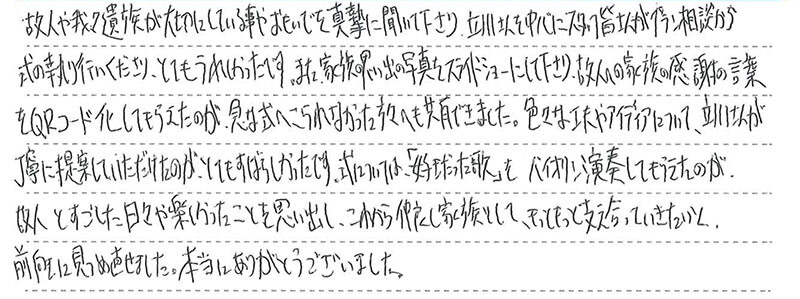 故人や我々遺族が大切にしている事やおもいでを真摯に聞いて下さり、立川さんを中心にスタッフ皆さんがプラン相談から
式の執り行いくださり、とてもうれしかったです。また家族の思い出の写真をスライドショーにして下さり、故人の家族の感謝の言葉
をQRコード化してもらえたのが、急な式へこられなかった方々へも共有できました。色々な工夫やアイディアについて、立川さんが
丁寧に提案していただけたのが、とてもすばらしかったです。式については、「好きだった歌」を バイオリン演奏してもらえたのが、
故人とすごした日々や楽しかったことを思い出し、これから仲良し家族として、もっともっと支え合っていきたいと、
前向きに見つめ直せました。本当にありがとうございました。